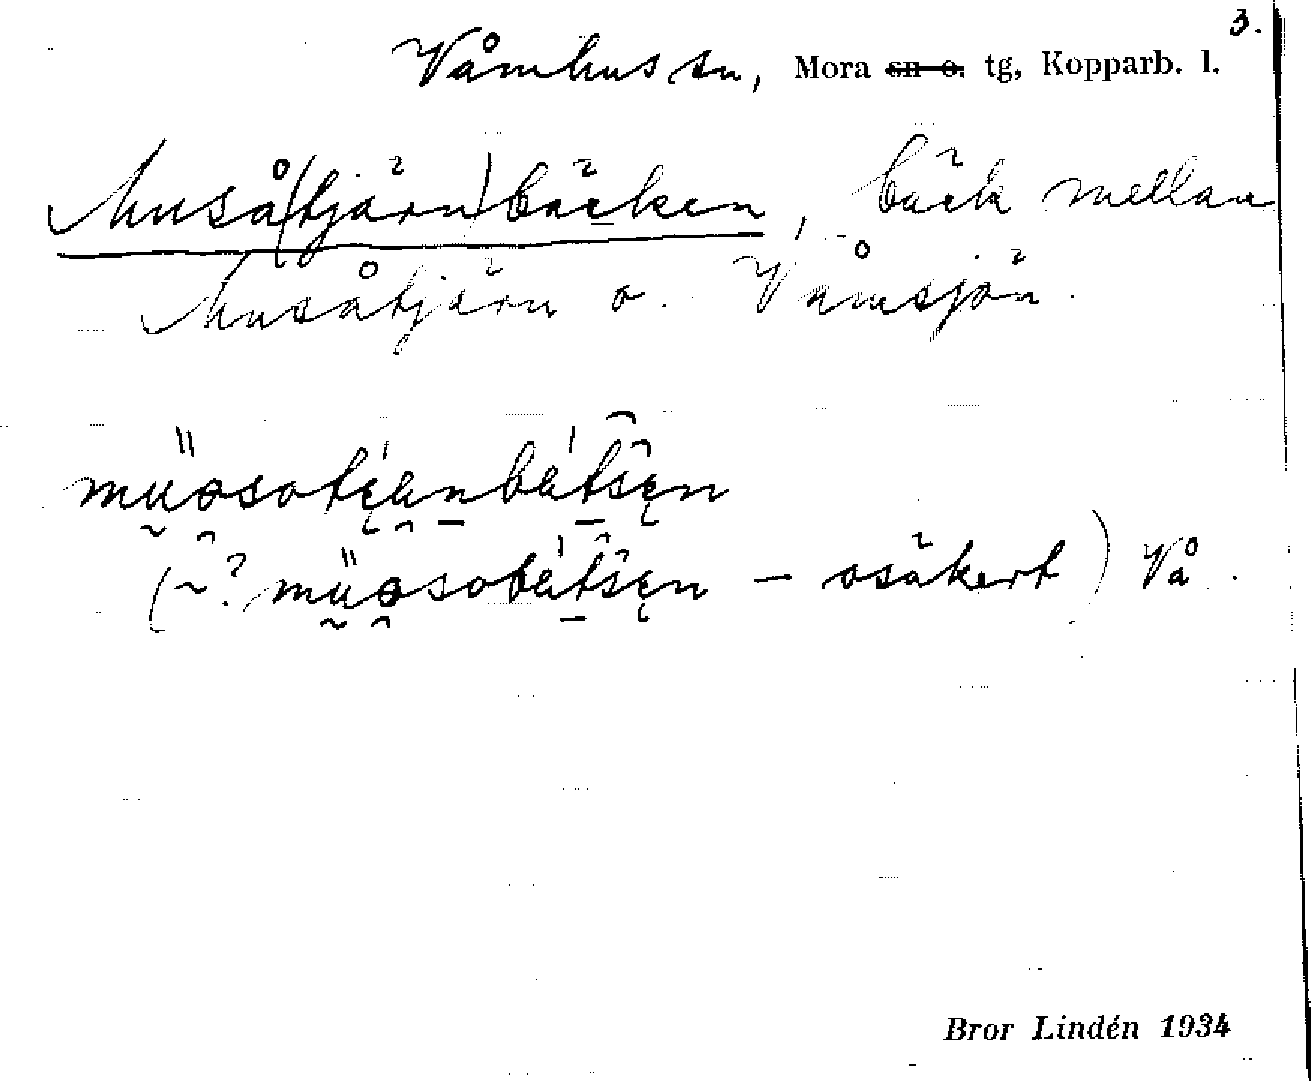 3.
Våmhus sn, Mora sn o. tg, Kopparb. l.
Muså(tjärn)bäcken, bäck mellan
Musåtjärn o. Våmsjön.
(~? – osäkert) Vå.
Bror Lindén 1934